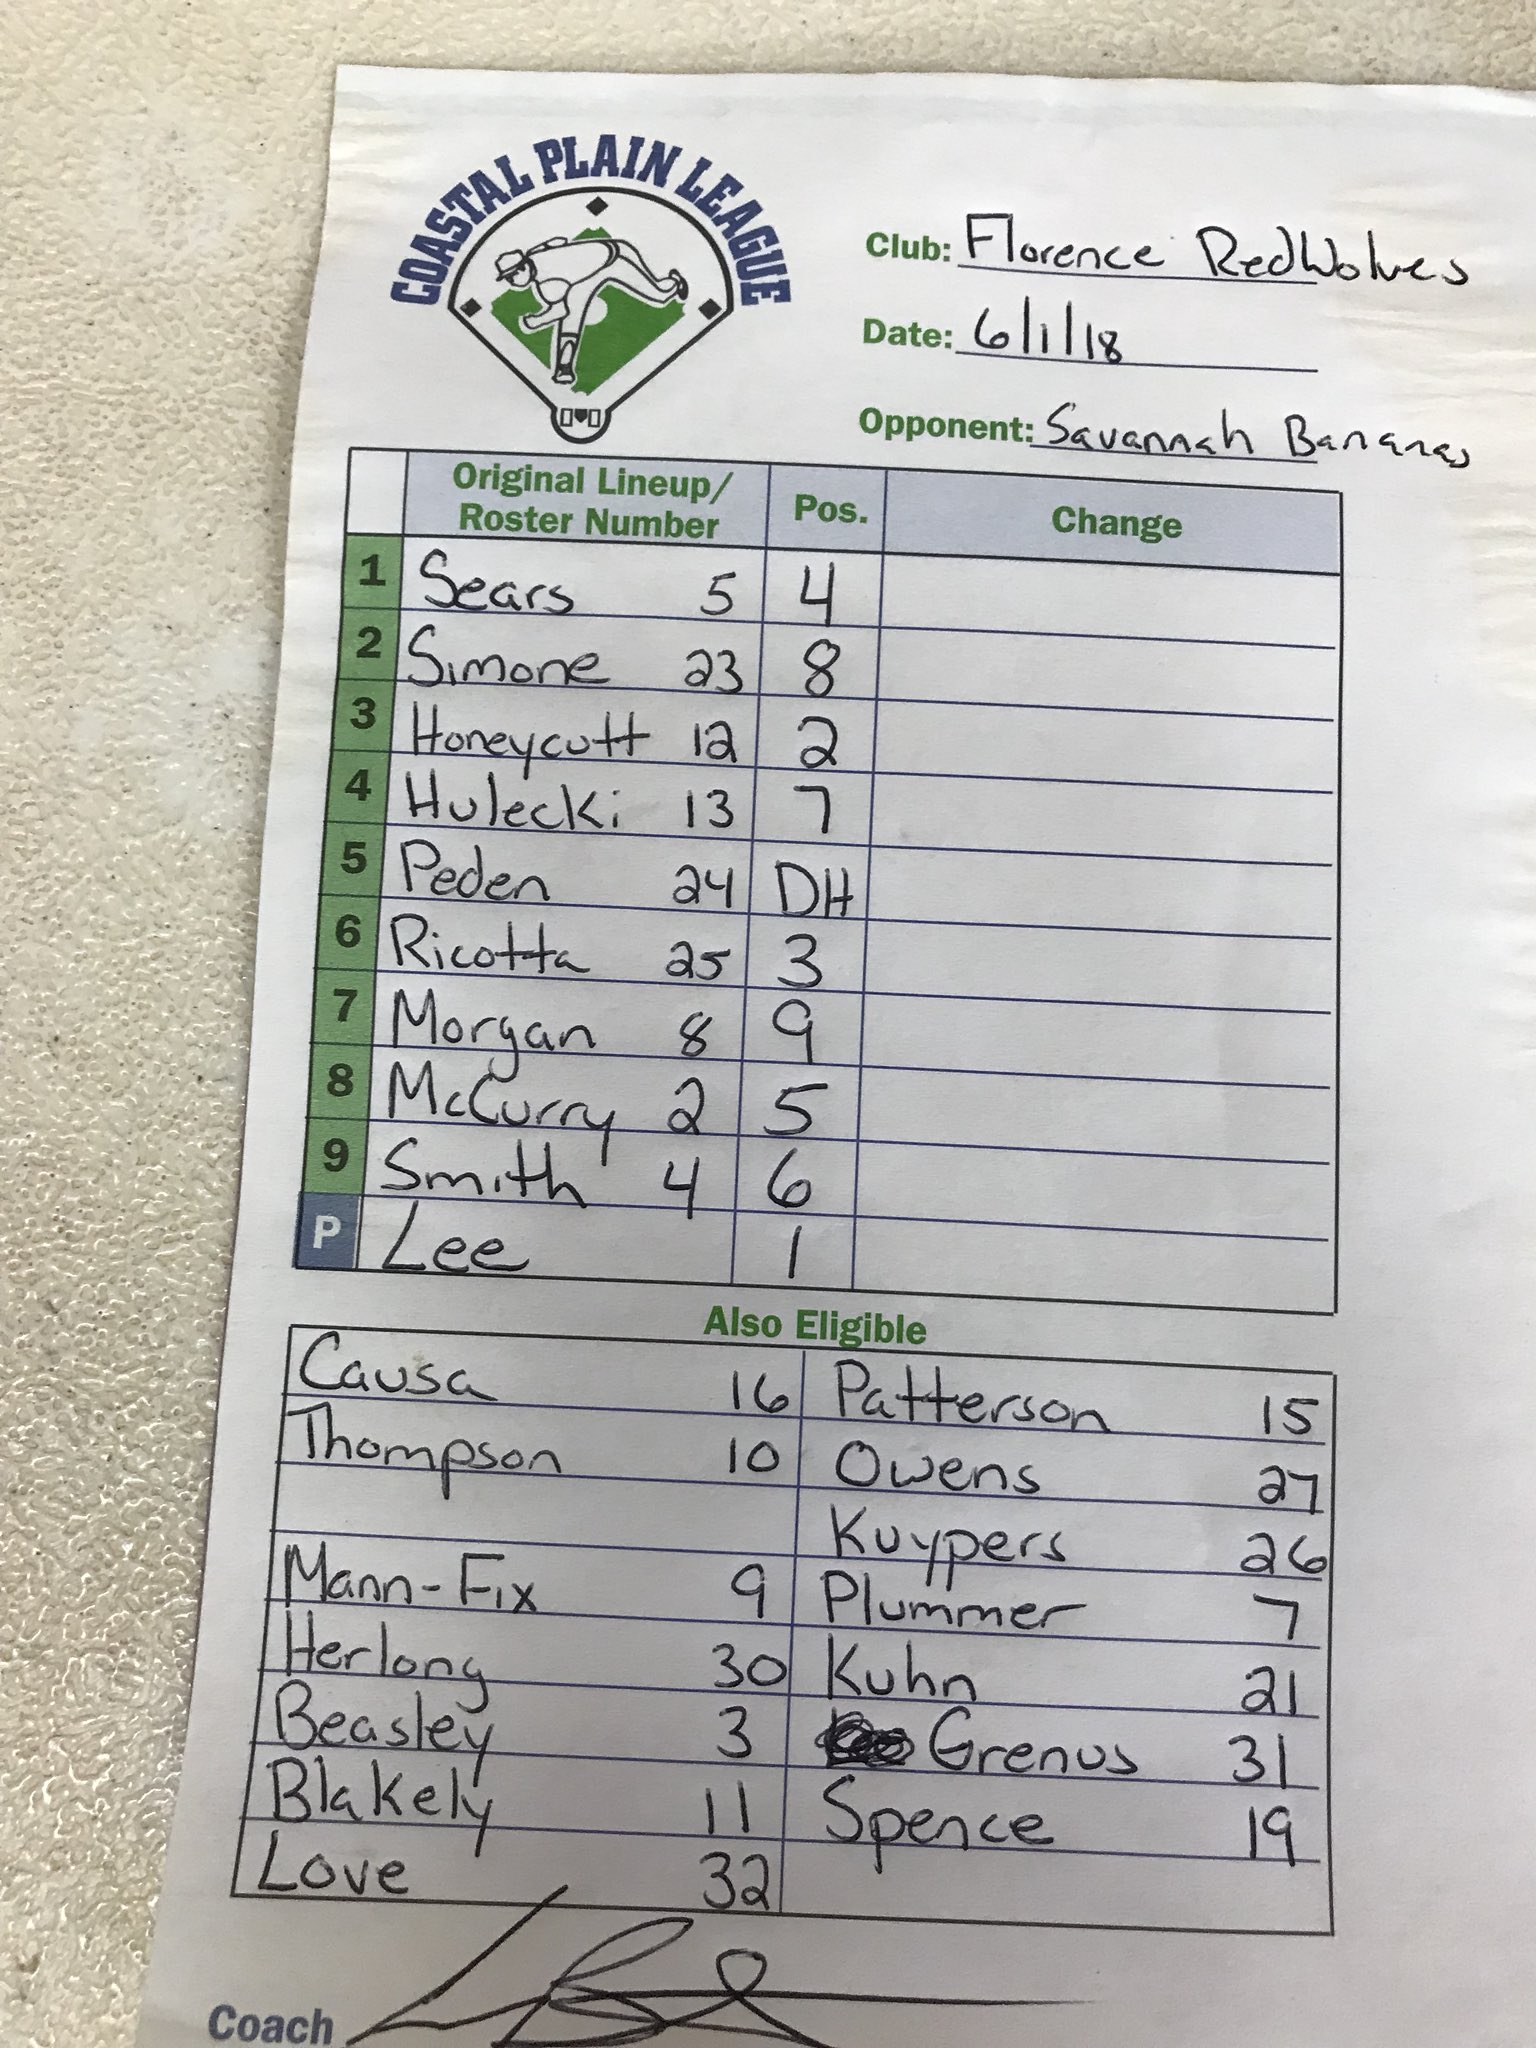 COASTAL PLAIN LEAGUE
Club: Florence RedWolves
Date: 6/1/18
Opponent: Savannah Bananas
Original Lineup/ Roster Number Pos. Change
1 Sears 5 4
2 Simone 23 8
3 Honeycutt 12 2
4 Hulecki 13 7
5 Peden 24 DH
6 Ricotta 25 3
7 Morgan 8 9
8 McCurry 2 5
9 Smith 4 6
P Lee 1
Also Eligible
Causa 16 Patterson 15
Thompson 10 Owens 27
Kuypers 26
Mann-Fix 9 Plummer 7
Herlong 30 Kuhn 21
Beasley 3 Grenus 31
Blakely 11 Spence 19
Love 32
Coach